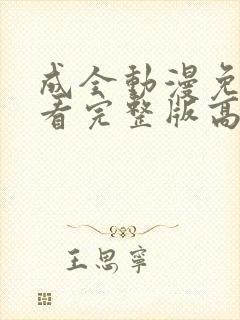 成全動漫免
看完整版高
王思寧